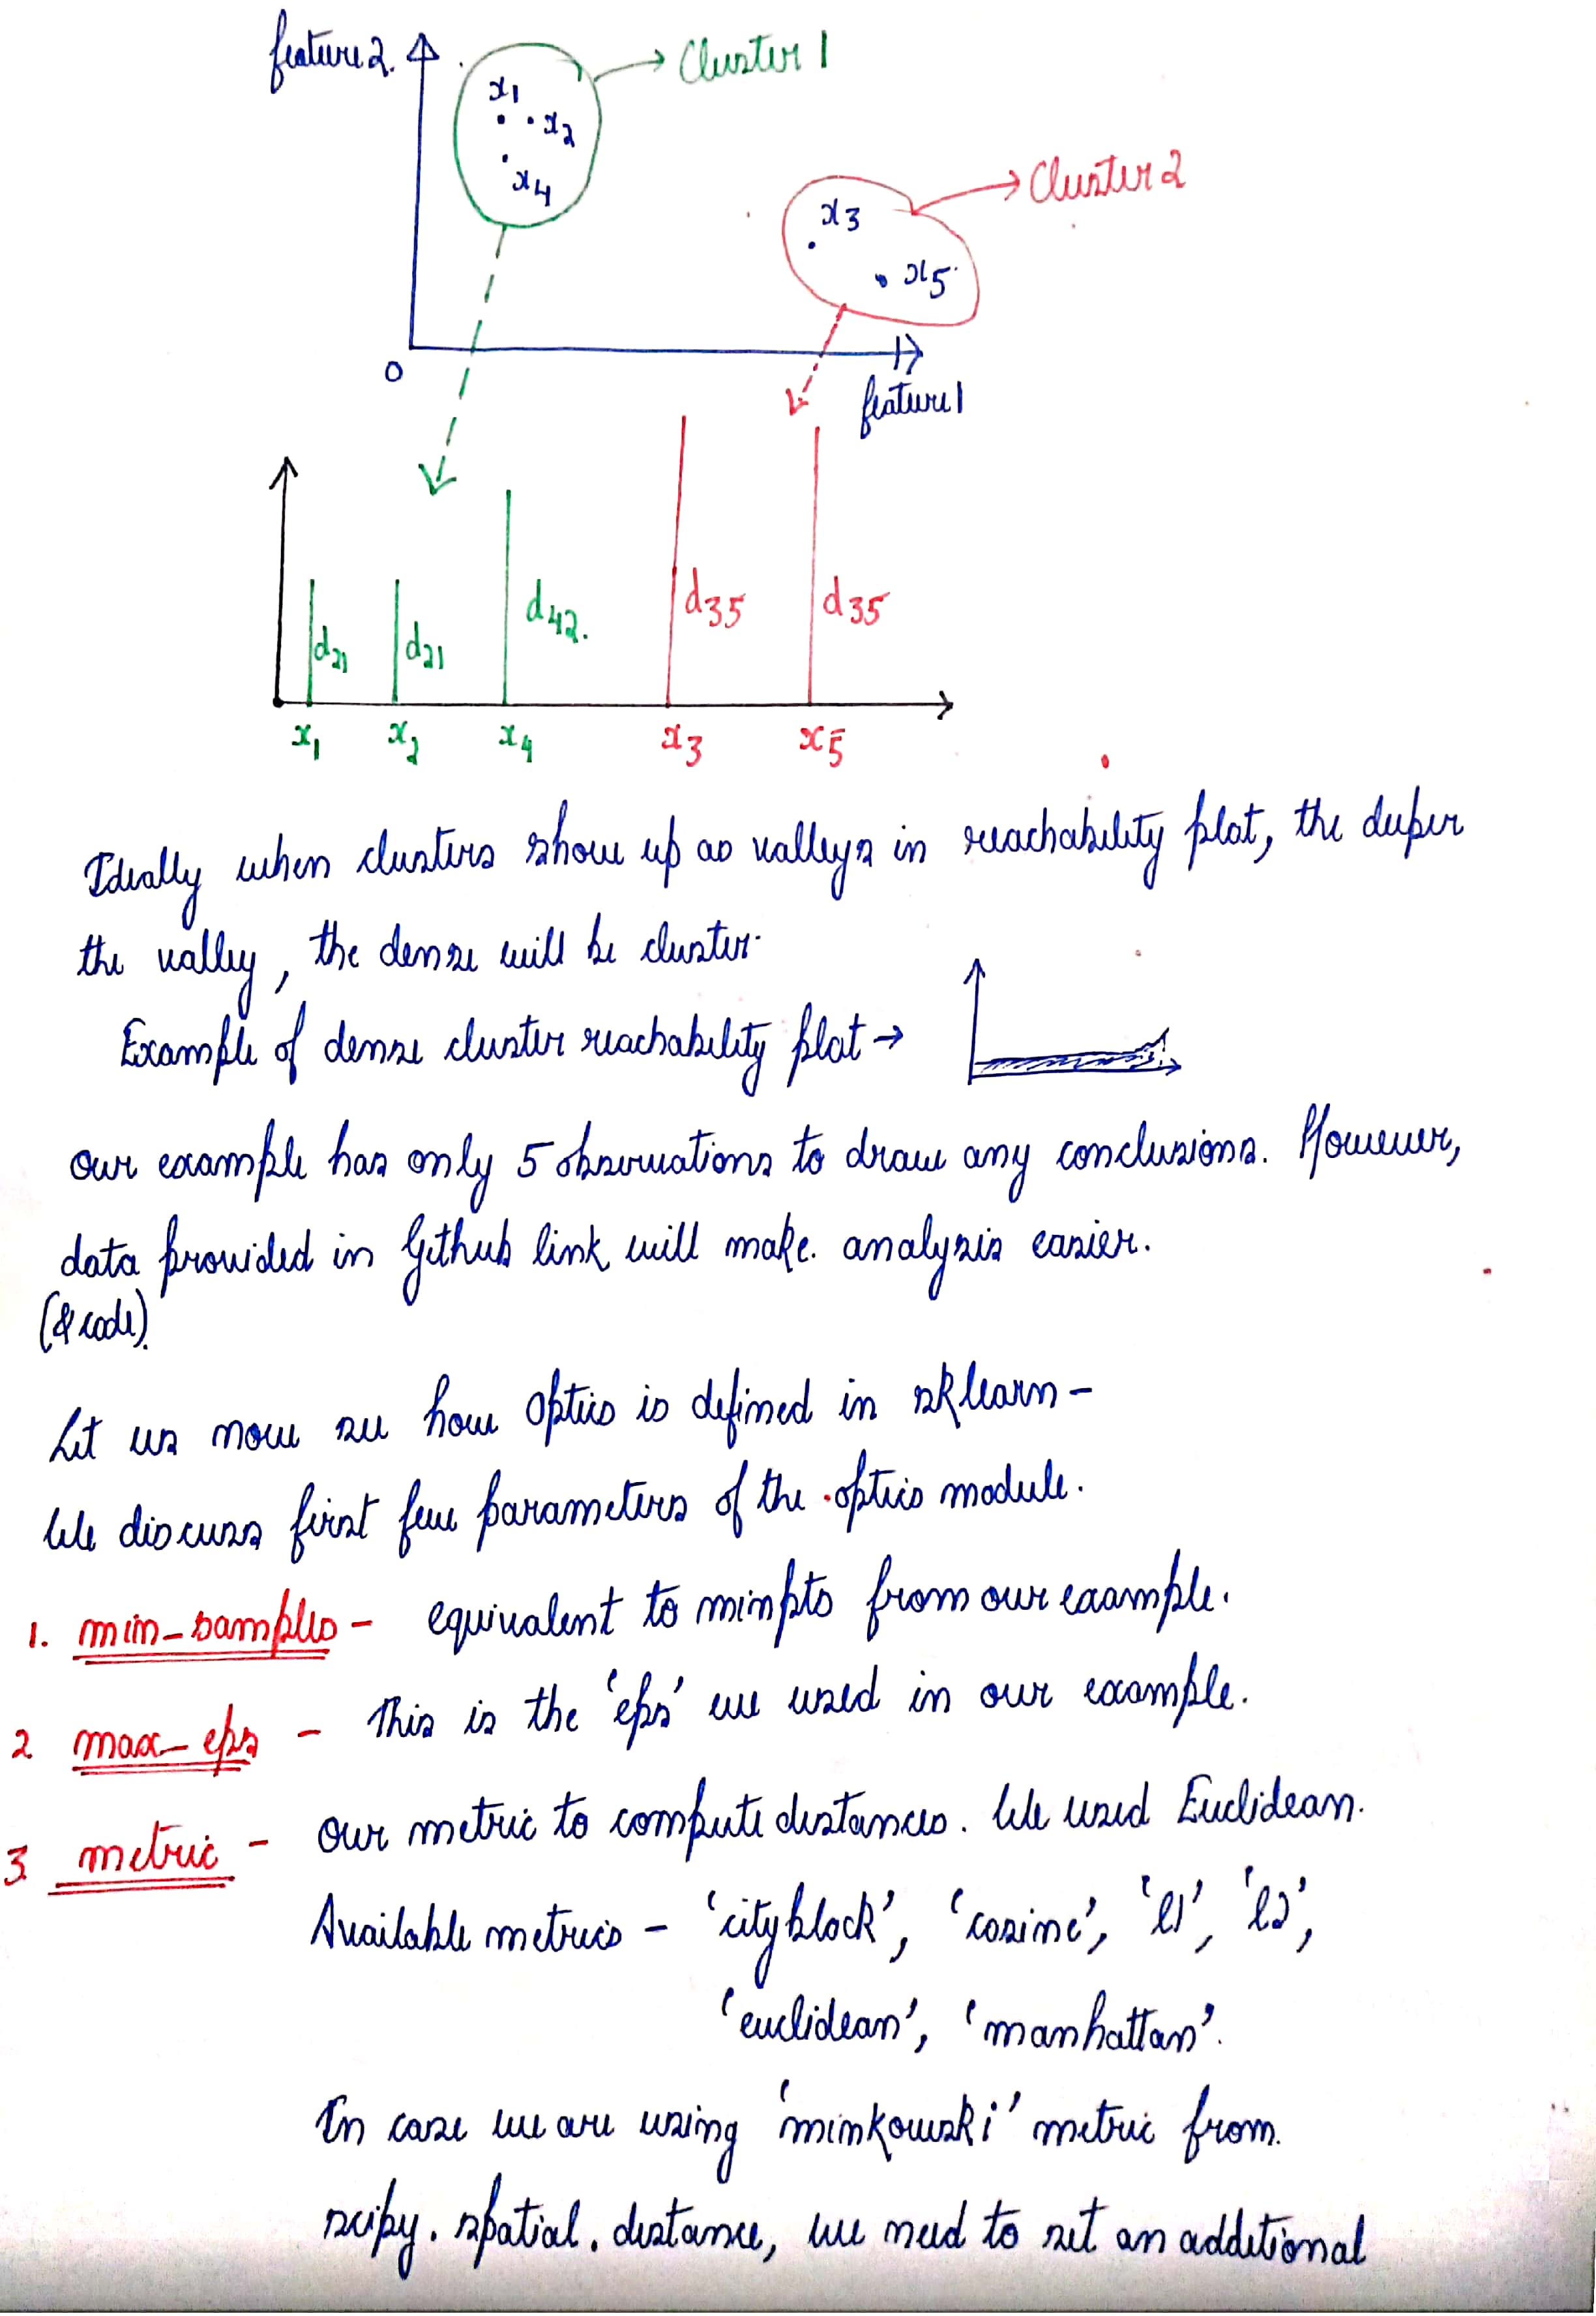 feature2.
Cluster 1
x1
x2
x4
Cluster 2
x3
x5
0
feature1
d21
d21
d42.
d35
d35
x1
x2
x4
x3
x5
Ideally when clusters show up as valleys in reachability plot, the deeper
the valley, the dense will be cluster.
Example of dense cluster reachability plot →
our example has only 5 observations to draw any conclusions. However,
data provided in Github link will make analysis easier.
(& code).
Let us now see how optics is defined in sklearn -
We discuss first few parameters of the optics module.
1. min_samples - equivalent to minpts from our example.
2 max_eps - This is the 'eps' we used in our example.
3 metric - our metric to compute distances. We used Euclidean.
Available metrics - 'cityblock', 'cosine', 'l1', 'l2',
'euclidean', 'manhattan'.
In case we are using 'minkowski' metric from
scipy.spatial.distance, we need to set an additional